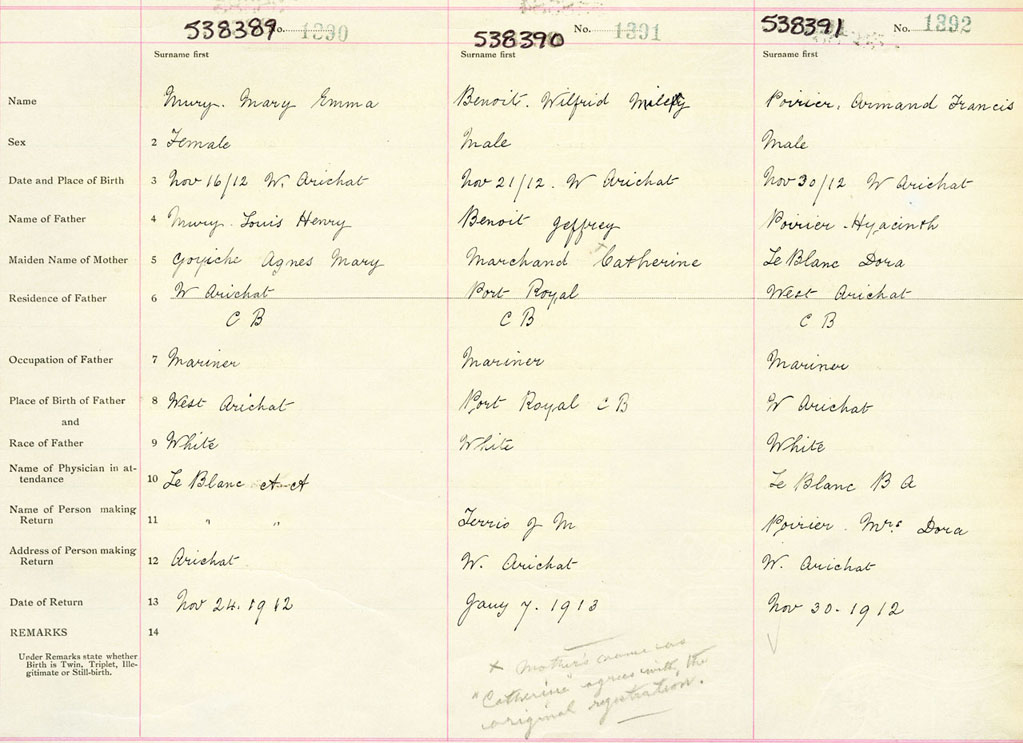 538389 No. 1390 538390 No. 1391 538391 No. 1392
Surname first Surname first Surname first
Name Mury. Mary Emma Benoit. Wilfrid Poirier, Armand Francis
Sex 2 Female Male Male
Date and Place of Birth 3 Nov 16/12 W. Arichat Nov 21/12. W Arichat Nov 30/12 W Arichat
Name of Father 4 Mury. Louis Henry Benoit Jeffrey Poirier. Hyacinth
Maiden Name of Mother 5 Goyiche Agnes Mary Marchand Catherine Le Blanc Dora
Residence of Father 6 W Arichat Port Royal West Arichat
C B C B C B
Occupation of Father 7 Mariner Mariner Mariner
Place of Birth of Father 8 West Arichat Port Royal C B W Arichat
and
Race of Father 9 White White White
Name of Physician in at-
tendance 10 Le Blanc A A Le Blanc B A
Name of Person making
Return 11 " " Terrio J M Poirier. Mrs Dora
Address of Person making
Return 12 Arichat W. Arichat W. Arichat
Date of Return 13 Nov 24. 1912 Jany 7. 1913 Nov 30. 1912
REMARKS 14
Under Remarks state whether
Birth is Twin, Triplet, Ille-
gitimate or Still-birth.
x Mother's name was
"Catherine" agrees with the
original registration.